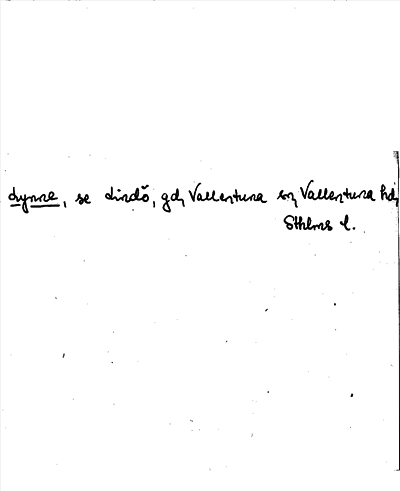 Lynne, se Lindö, gd, Vallentuna sn, Vallentuna hd,
Sthlms l.